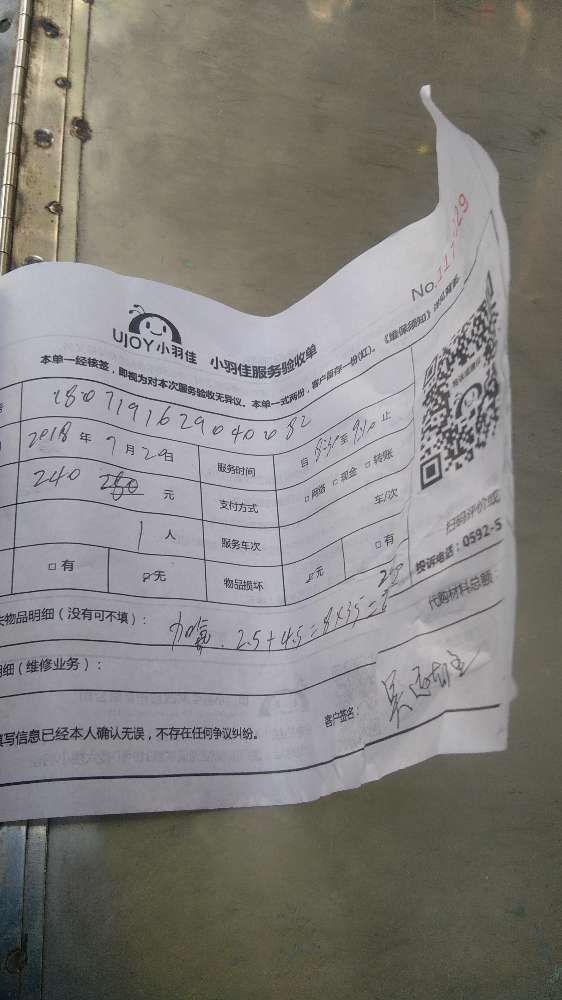 No.117 29
UJOY小羽佳 小羽佳服务验收单
本单一经核签，即视为对本次服务验收无异议。本单一式两份，客户留存一份(红)。《维保须知》详见背面。
1807191629040082
2018年7月20日 服务时间 自8:30至9:10止
240 元 支付方式 □网络 □现金 □转账
1人 服务车次 车/次
□有 □无 物品损坏 □无 □有
物品明细（没有可不填）：
加氟. 2.5+4.5=8×35=
细（维修业务）： 代购材料总额
填写信息已经本人确认无误，不存在任何争议纠纷。 客户签名：
扫码评价
投诉电话：0592-5